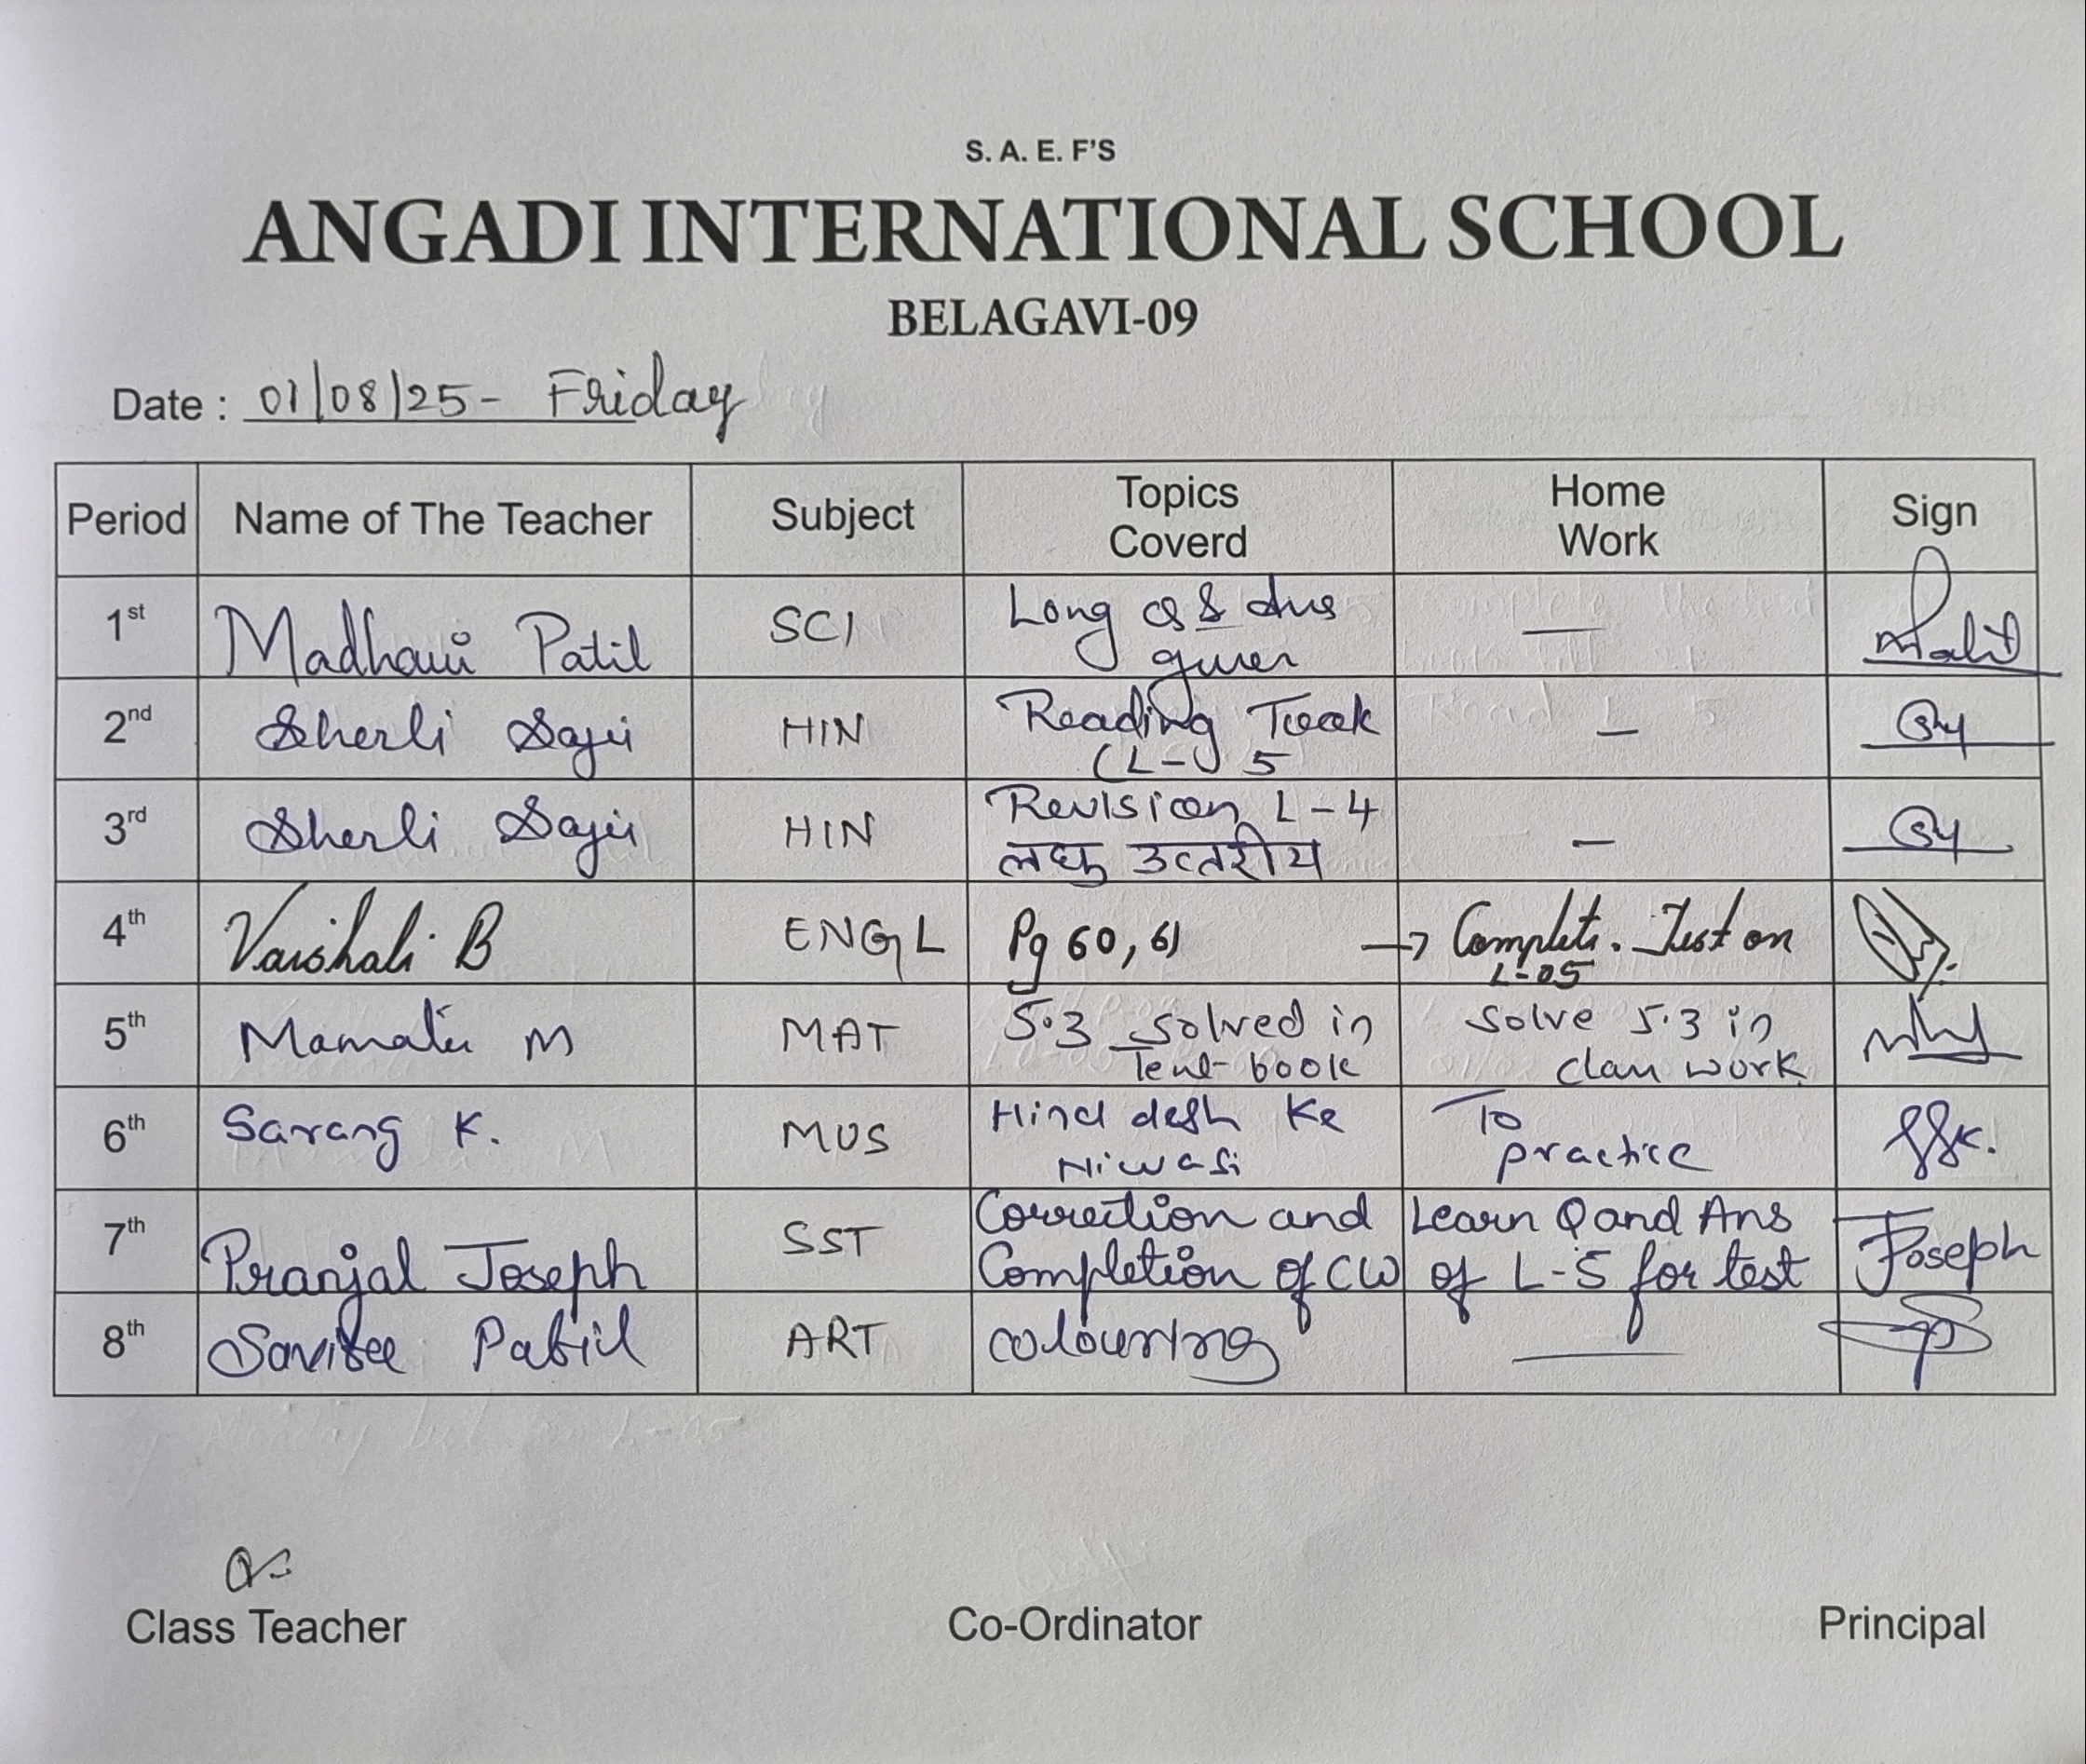 S. A. E. F'S
ANGADI INTERNATIONAL SCHOOL
BELAGAVI-09
Date : 01/08/25 - Friday
Period Name of The Teacher Subject Topics Coverd Home Work Sign
1st Madhavi Patil SCI Long Q & Ans given — Patil
2nd Sherli Saju HIN Reading Task (L-5 —
3rd Sherli Saju HIN Revision L-4 लघु उत्तरीय —
4th Vaishali B ENGL Pg 60, 61 → Complete. Test on L-05
5th Mamata M MAT 5.3 solved in Text book Solve 5.3 in class work
6th Sarang K. MUS Hind desh Ke Niwasi To practice
7th Pranjal Joseph SST Correction and Completion of CW Learn Q and Ans of L-5 for test Joseph
8th Savitee Patil ART colouring —
Class Teacher Co-Ordinator Principal